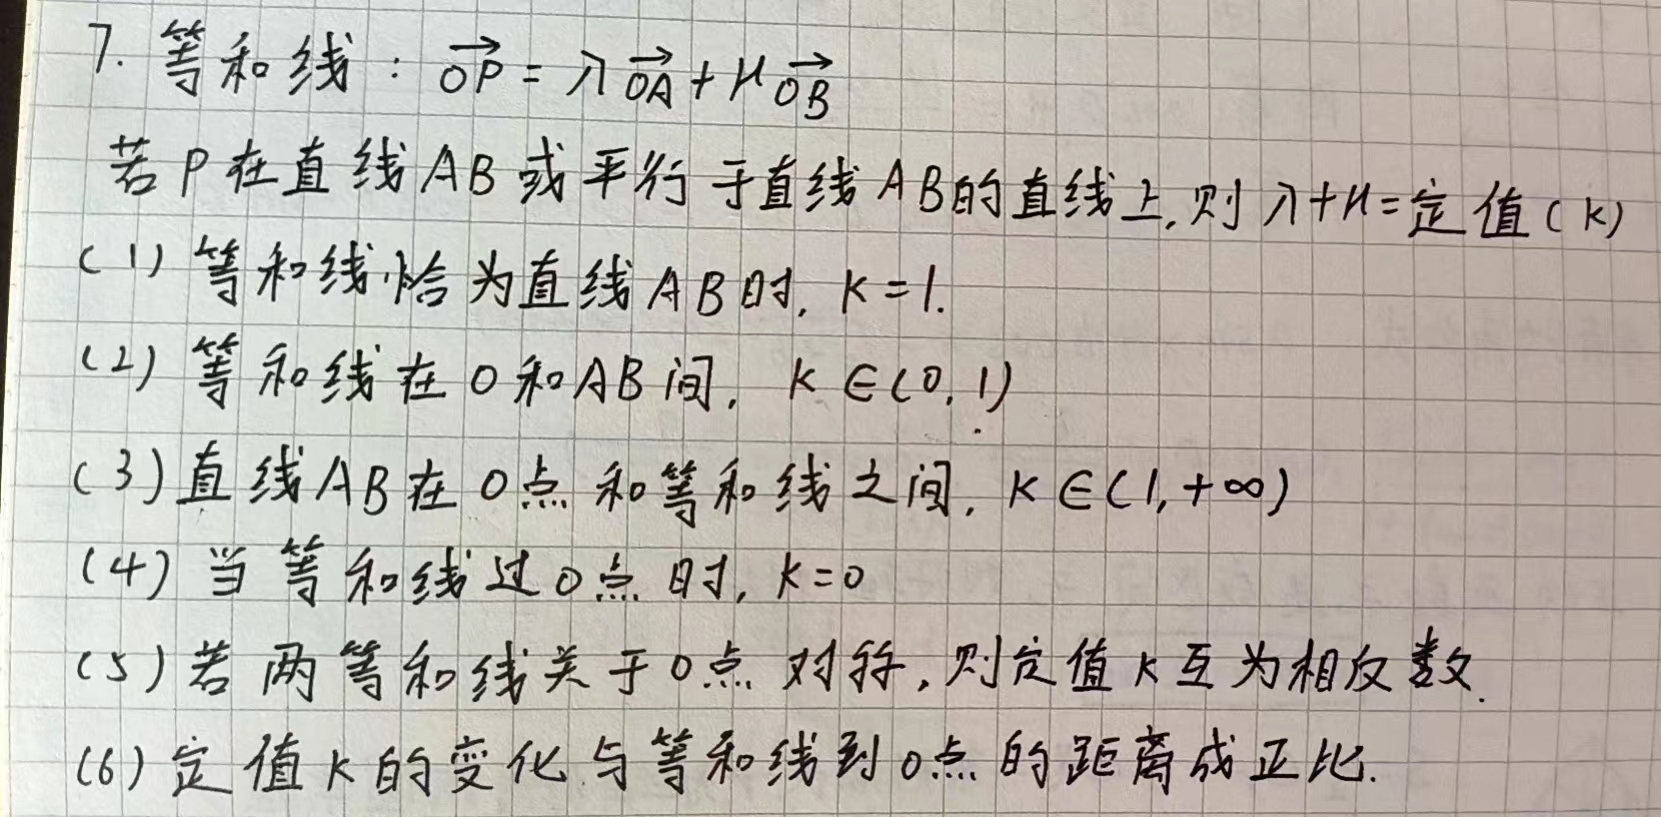 7. 等和线：$\overrightarrow{OP}=λ\overrightarrow{OA}+μ\overrightarrow{OB}$
若P在直线AB或平行于直线AB的直线上,则λ+μ=定值(k)
(1) 等和线恰为直线AB时, k=1.
(2) 等和线在O和AB间, k∈(0,1)
(3) 直线AB在O点和等和线之间, k∈(1,+∞)
(4) 当等和线过O点时, k=0
(5) 若两等和线关于O点对称,则定值k互为相反数.
(6) 定值k的变化与等和线到O点的距离成正比.